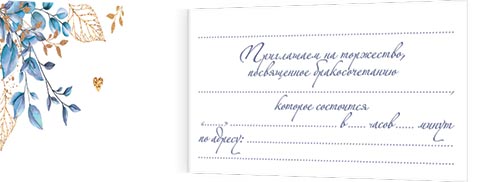 Приглашаем на торжество,
посвященное бракосочетанию
,
которое состоится
«......» ........................ в ...... часов ...... минут
по адресу: ........................